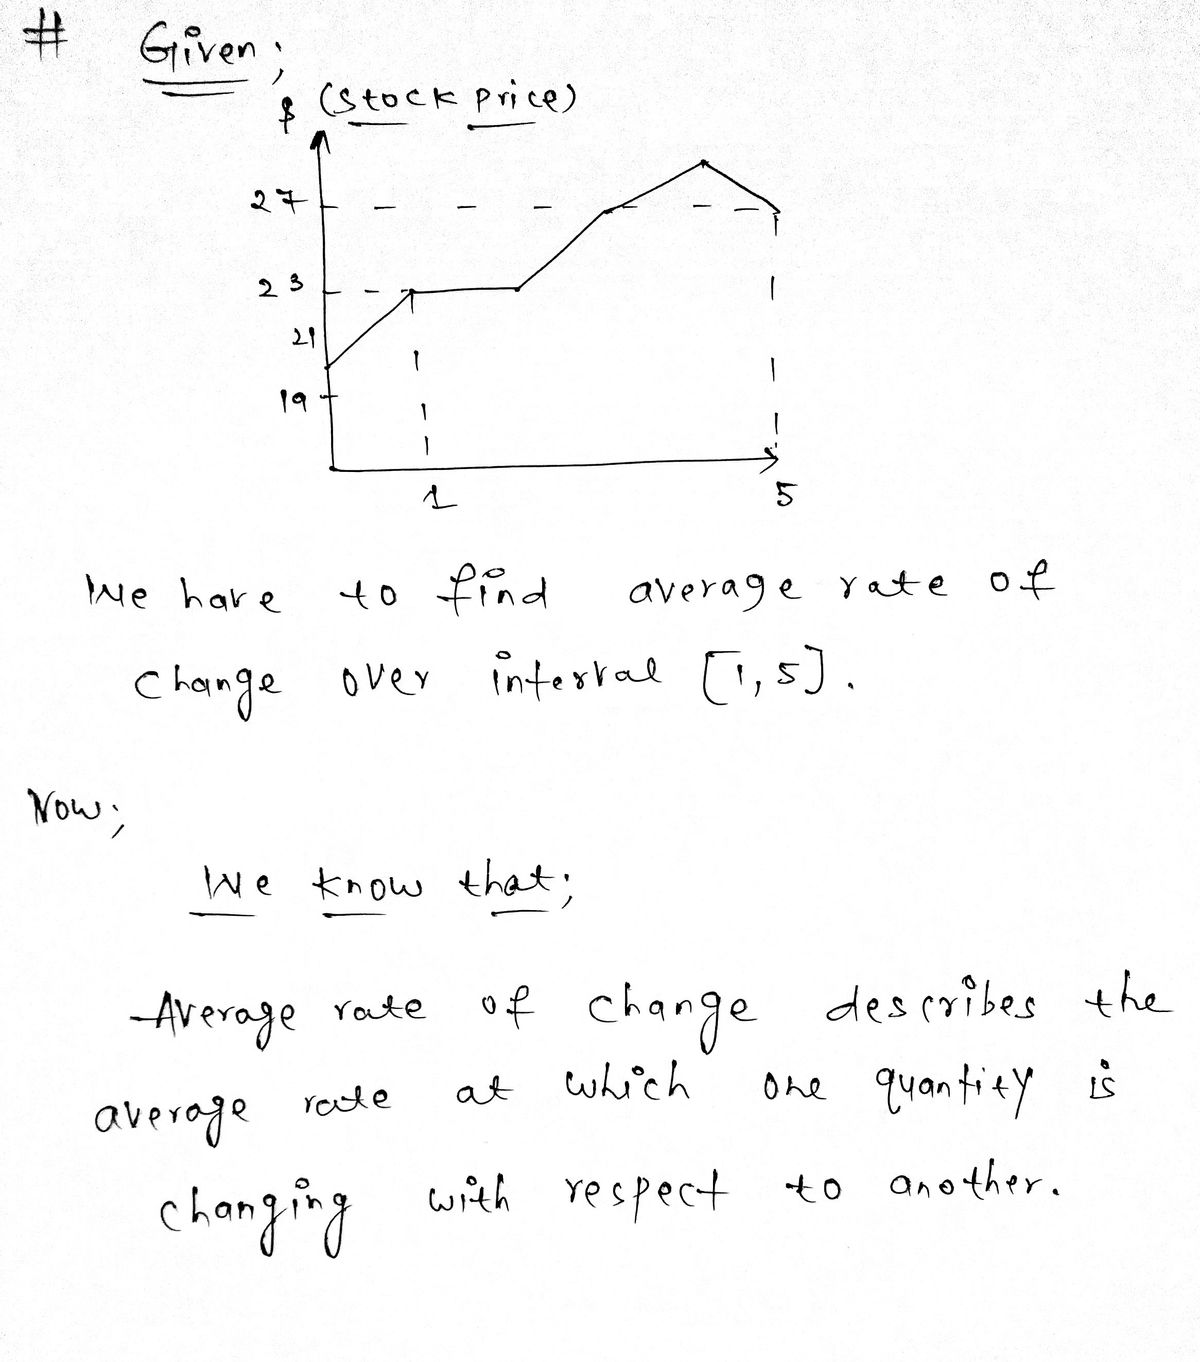 # Given;
$ (stock price)
27
23
21
19
1
5
We have to find average rate of
change over interval [1,5].
Now;
We know that;
Average rate of change describes the
average rate at which one quantity is
changing with respect to another.